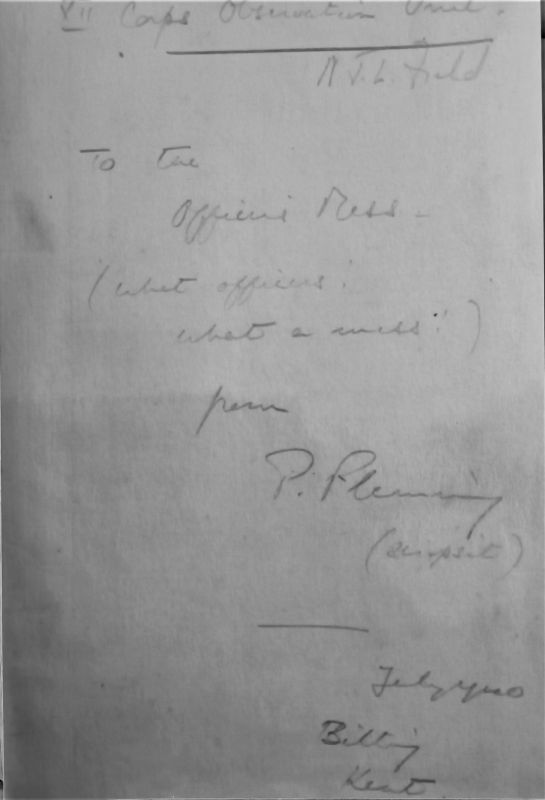 XII Corps Observation Unit.
N.V.L. Field
To the
Officers Mess -
(what officers!
what a mess!)
from
P. Fleming
(scripsit)
July 1940
Billing
Kent